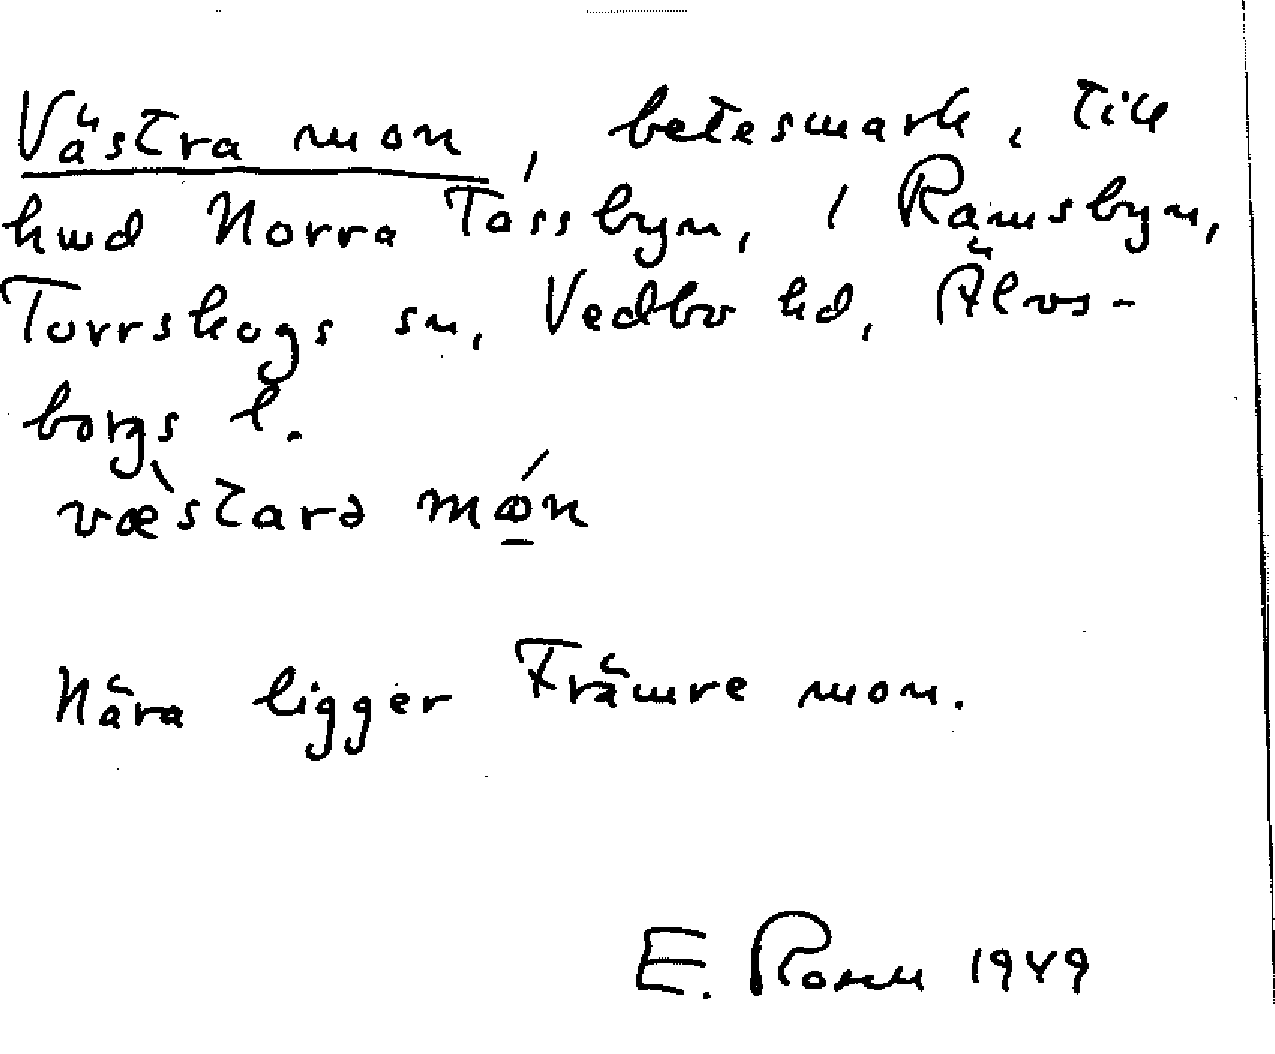 Västra mon, betesmark, till
hmd Norra Tassbyn, i Ramsbyn,
Torrskogs sn, Vedbo hd, Älvs-
borgs l.
væ̀starə mǿn
Nära ligger Främre mon.
E. Rosen 1949